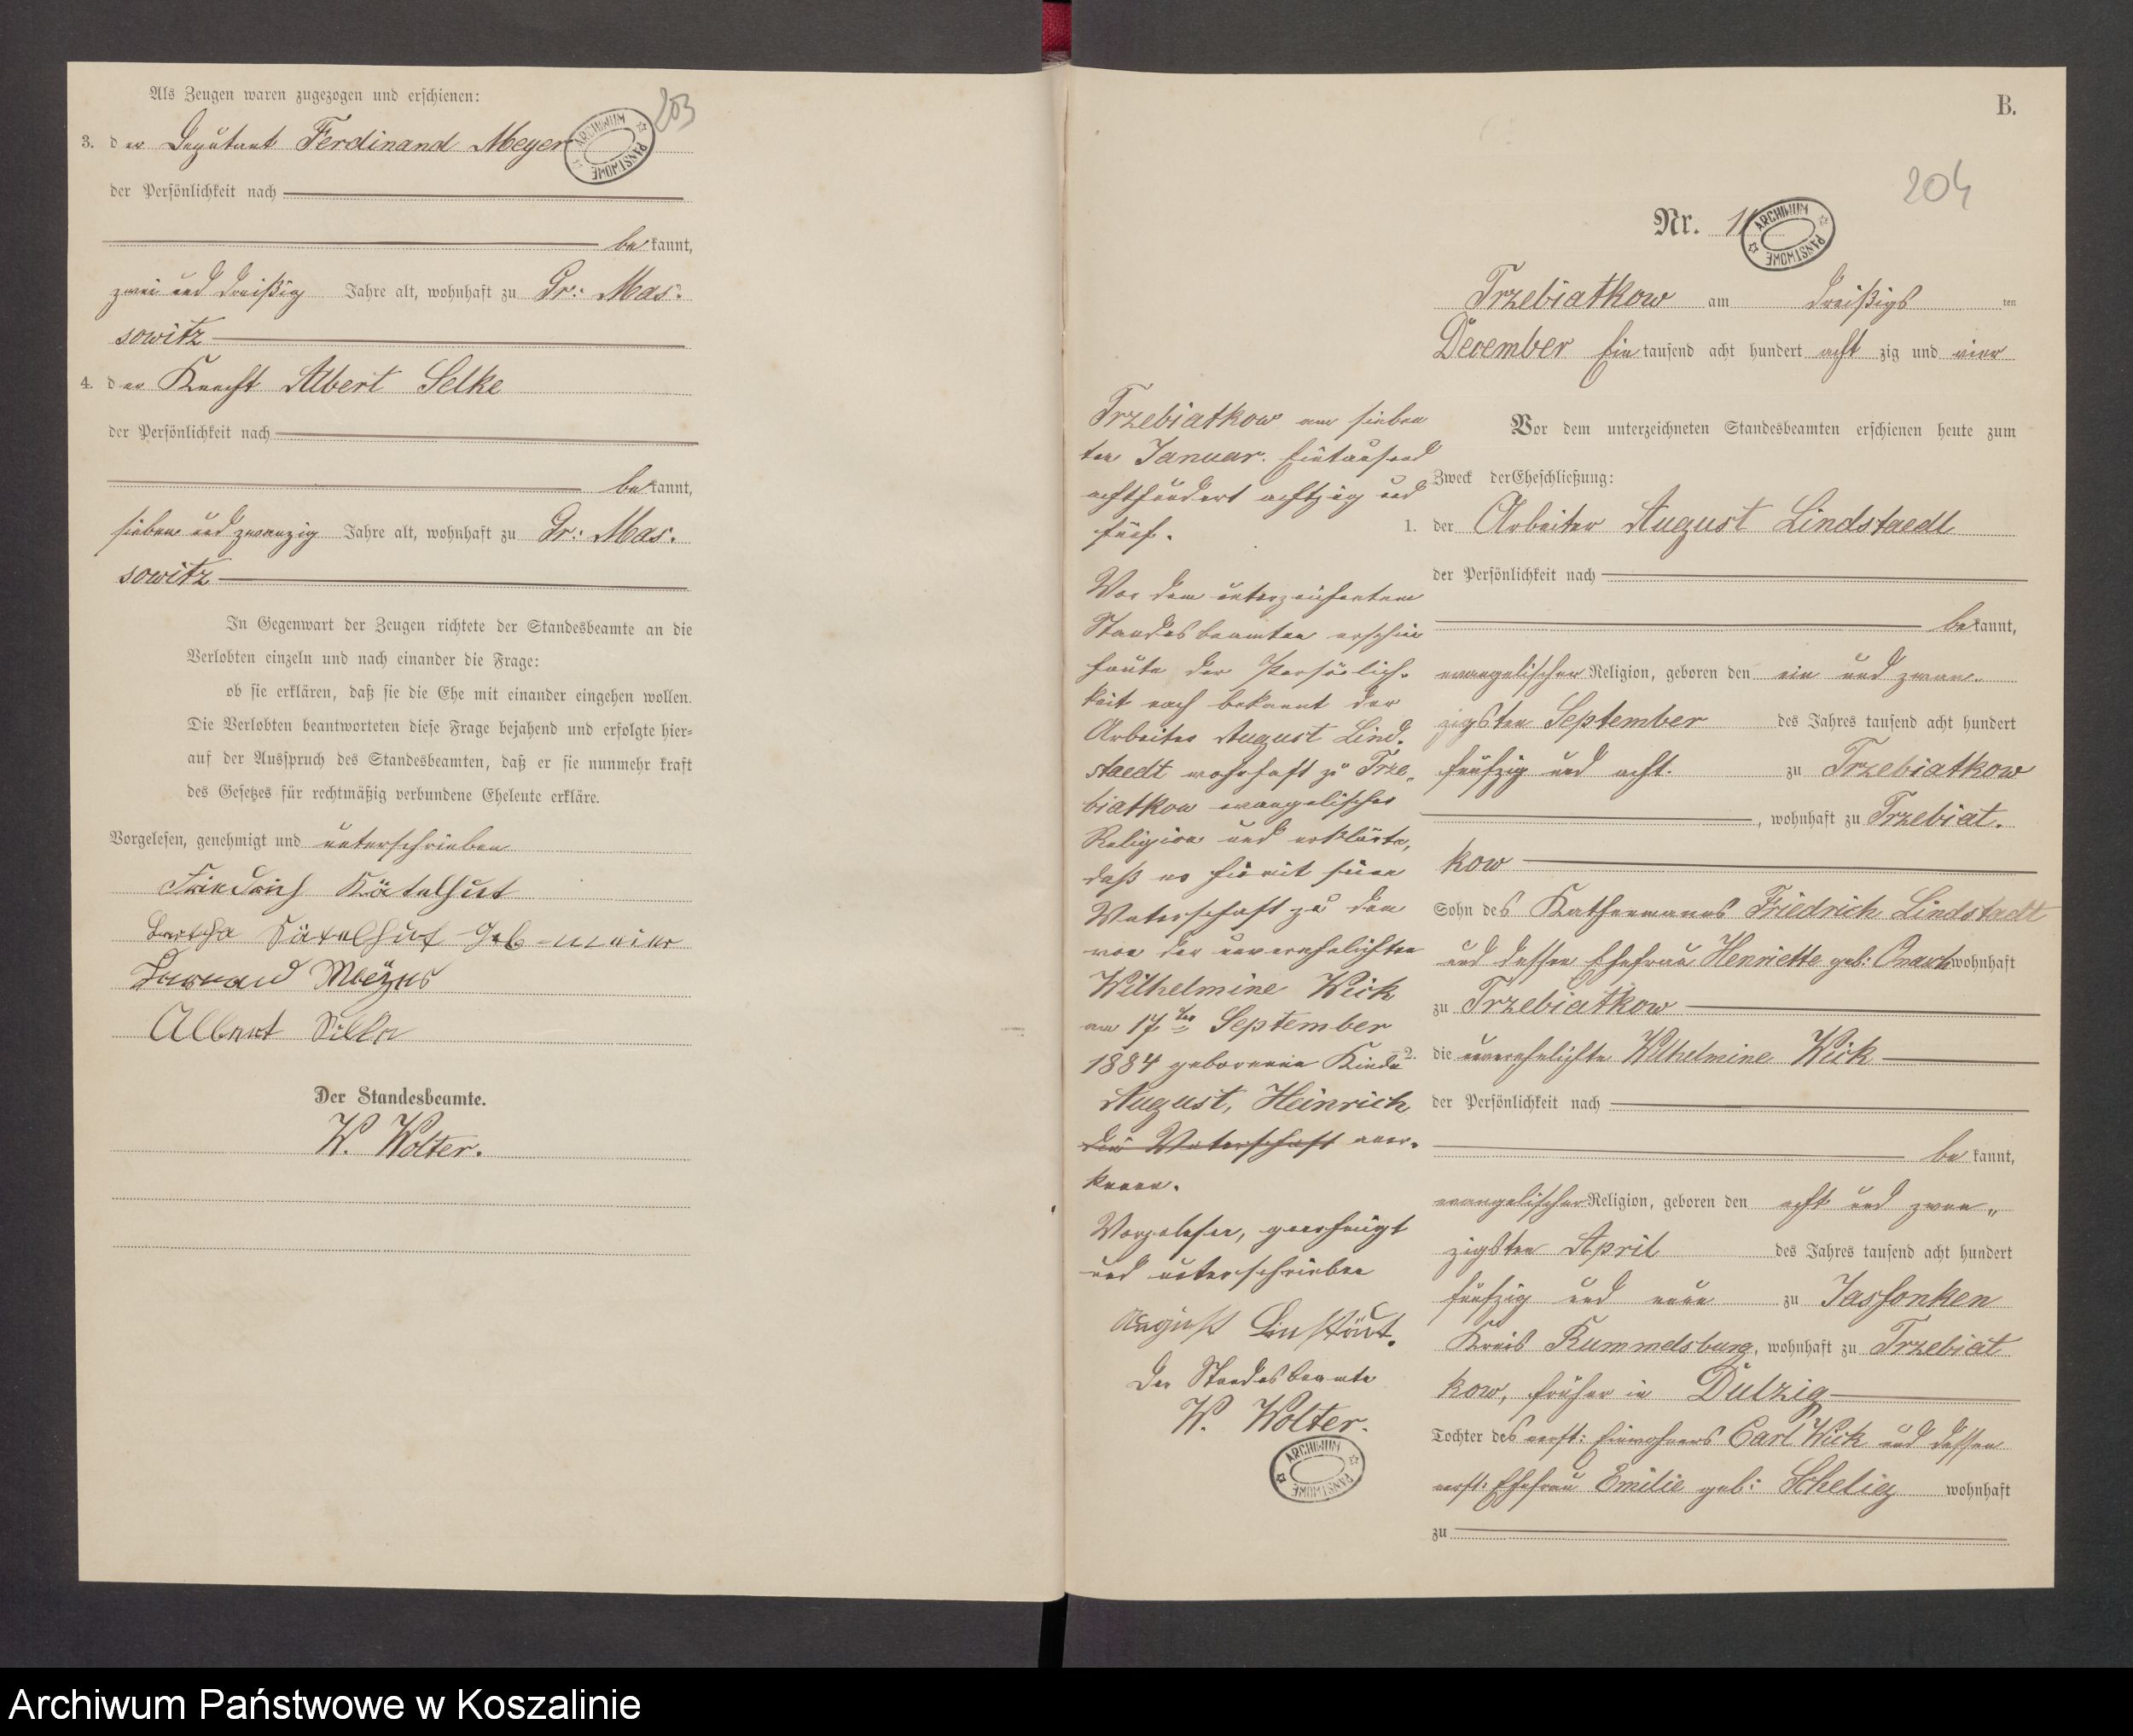 203
Als Zeugen waren zugezogen und erschienen:
3. der Deputant Ferdinand Meyer
ARCHIWUM PAŃSTWOWE
der Persönlichkeit nach
bekannt,
zwei und dreißig Jahre alt, wohnhaft zu Gr: Mas-
sowitz
4. der Knecht Albert Selke
der Persönlichkeit nach
bekannt,
sieben und zwanzig Jahre alt, wohnhaft zu Gr: Mas-
sowitz
In Gegenwart der Zeugen richtete der Standesbeamte an die
Verlobten einzeln und nach einander die Frage:
ob sie erklären, daß sie die Ehe mit einander eingehen wollen.
Die Verlobten beantworteten diese Frage bejahend und erfolgte hier-
auf der Ausspruch des Standesbeamten, daß er sie nunmehr kraft
des Gesetzes für rechtmäßig verbundene Eheleute erkläre.
Vorgelesen, genehmigt und unterschrieben
Friedrich Kätelhut
Bertha Kätelhut geb meier
Albert Selke
Der Standesbeamte.
W. Wolter.
B.
204
Nr. 11
ARCHIWUM PAŃSTWOWE
Trzebiatkow am dreißigsten
December Eintausend acht hundert achtzig und vier
Vor dem unterzeichneten Standesbeamten erschienen heute zum
Zweck der Eheschließung:
1. der Arbeiter August Lindstaedt
der Persönlichkeit nach
bekannt,
evangelischer Religion, geboren den ein und zwan-
zigsten September des Jahres tausend acht hundert
fünfzig und acht. zu Trzebiatkow
, wohnhaft zu Trzebiat-
kow
Sohn des Kathenmanns Friedrich Lindstaedt
und dessen Ehefrau Henriette geb: wohnhaft
zu Trzebiatkow
2. die unverehelichte Wilhelmine Wick
der Persönlichkeit nach
bekannt,
evangelischer Religion, geboren den acht und zwan„
zigsten April des Jahres tausend acht hundert
fünfzig und neun zu Jassonken
Kreis Rummelsburg, wohnhaft zu Trzebiat
kow, früher in Dulzig
Tochter des verst: Einwohners Carl Wick und dessen
verst: Ehefrau Emilie geb: Schelig wohnhaft
zu
Trzebiatkow am sieben
ten Januar. Eintausend
achthundert achtzig und
fünf.
Vor dem unterzeichneten
Standesbeamten erschien
heute der Persönlich-
keit nach bekannt der
Arbeiter August Lind-
staedt wohnhaft zu Trze„
biatkow evangelischer
Religion und erklärte,
daß er hiermit seine
Vaterschaft zu dem
von der unverehelichten
Wilhelmine Wick
am 17ten September
1884 geborenen Kinde
August, Heinrich
die Vaterschaft aner-
kenne.
Vorgelesen, genehmigt
und unterschrieben
August Linstädt.
Der Standesbeamte
W. Wolter.
ARCHIWUM PAŃSTWOWE
Archiwum Państwowe w Koszalinie